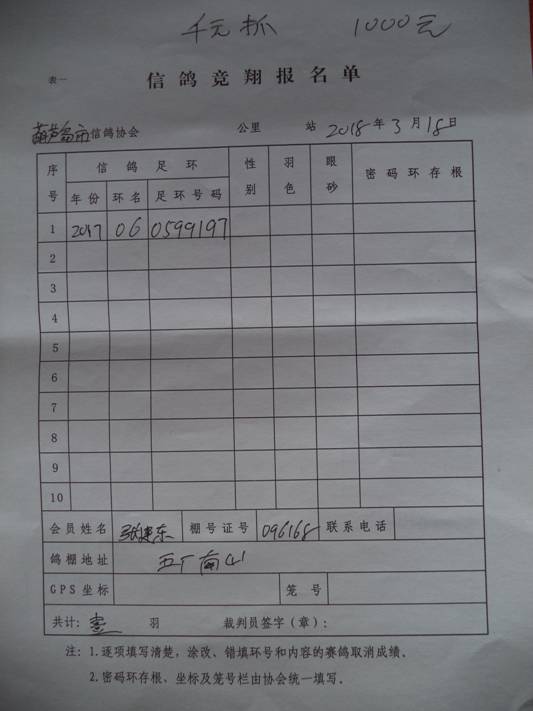 千元抓 1000元
表一
信鸽竞翔报名单
葫芦岛市信鸽协会 公里 站 2018年3月18日
序号 信鸽足环 性别 羽色 眼砂 密码环存根
年份 环名 足环号码
1 2017 06 0599197
2
3
4
5
6
7
8
9
10
会员姓名 张建东 棚号证号 096168 联系电话
鸽棚地址 五厂南山
GPS坐标 笼号
共计: 壹 羽 裁判员签字(章):
注: 1.逐项填写清楚，涂改、错填环号和内容的赛鸽取消成绩。
2.密码环存根、坐标及笼号栏由协会统一填写。